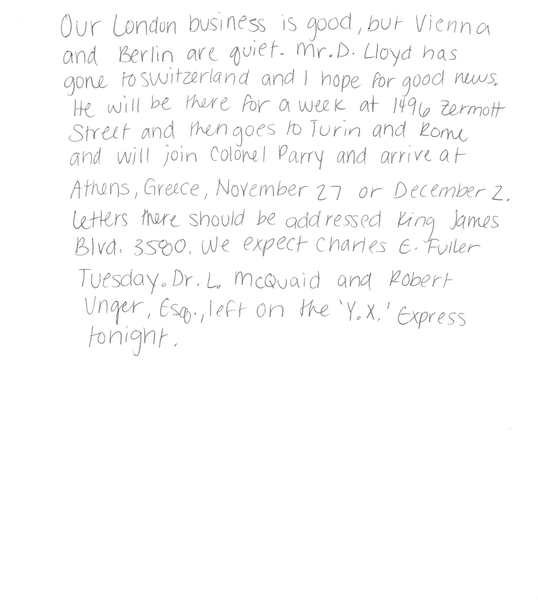 Our London business is good, but Vienna
and Berlin are quiet. Mr. D. Lloyd has
gone to Switzerland and I hope for good news.
He will be there for a week at 1496 Zermott
Street and then goes to Turin and Rome
and will join Colonel Parry and arrive at
Athens, Greece, November 27 or December 2.
Letters there should be addressed King James
Blvd. 3580. We expect Charles E. Fuller
Tuesday. Dr. L. McQuaid and Robert
Unger, Esq., left on the 'Y.X.' Express
tonight.